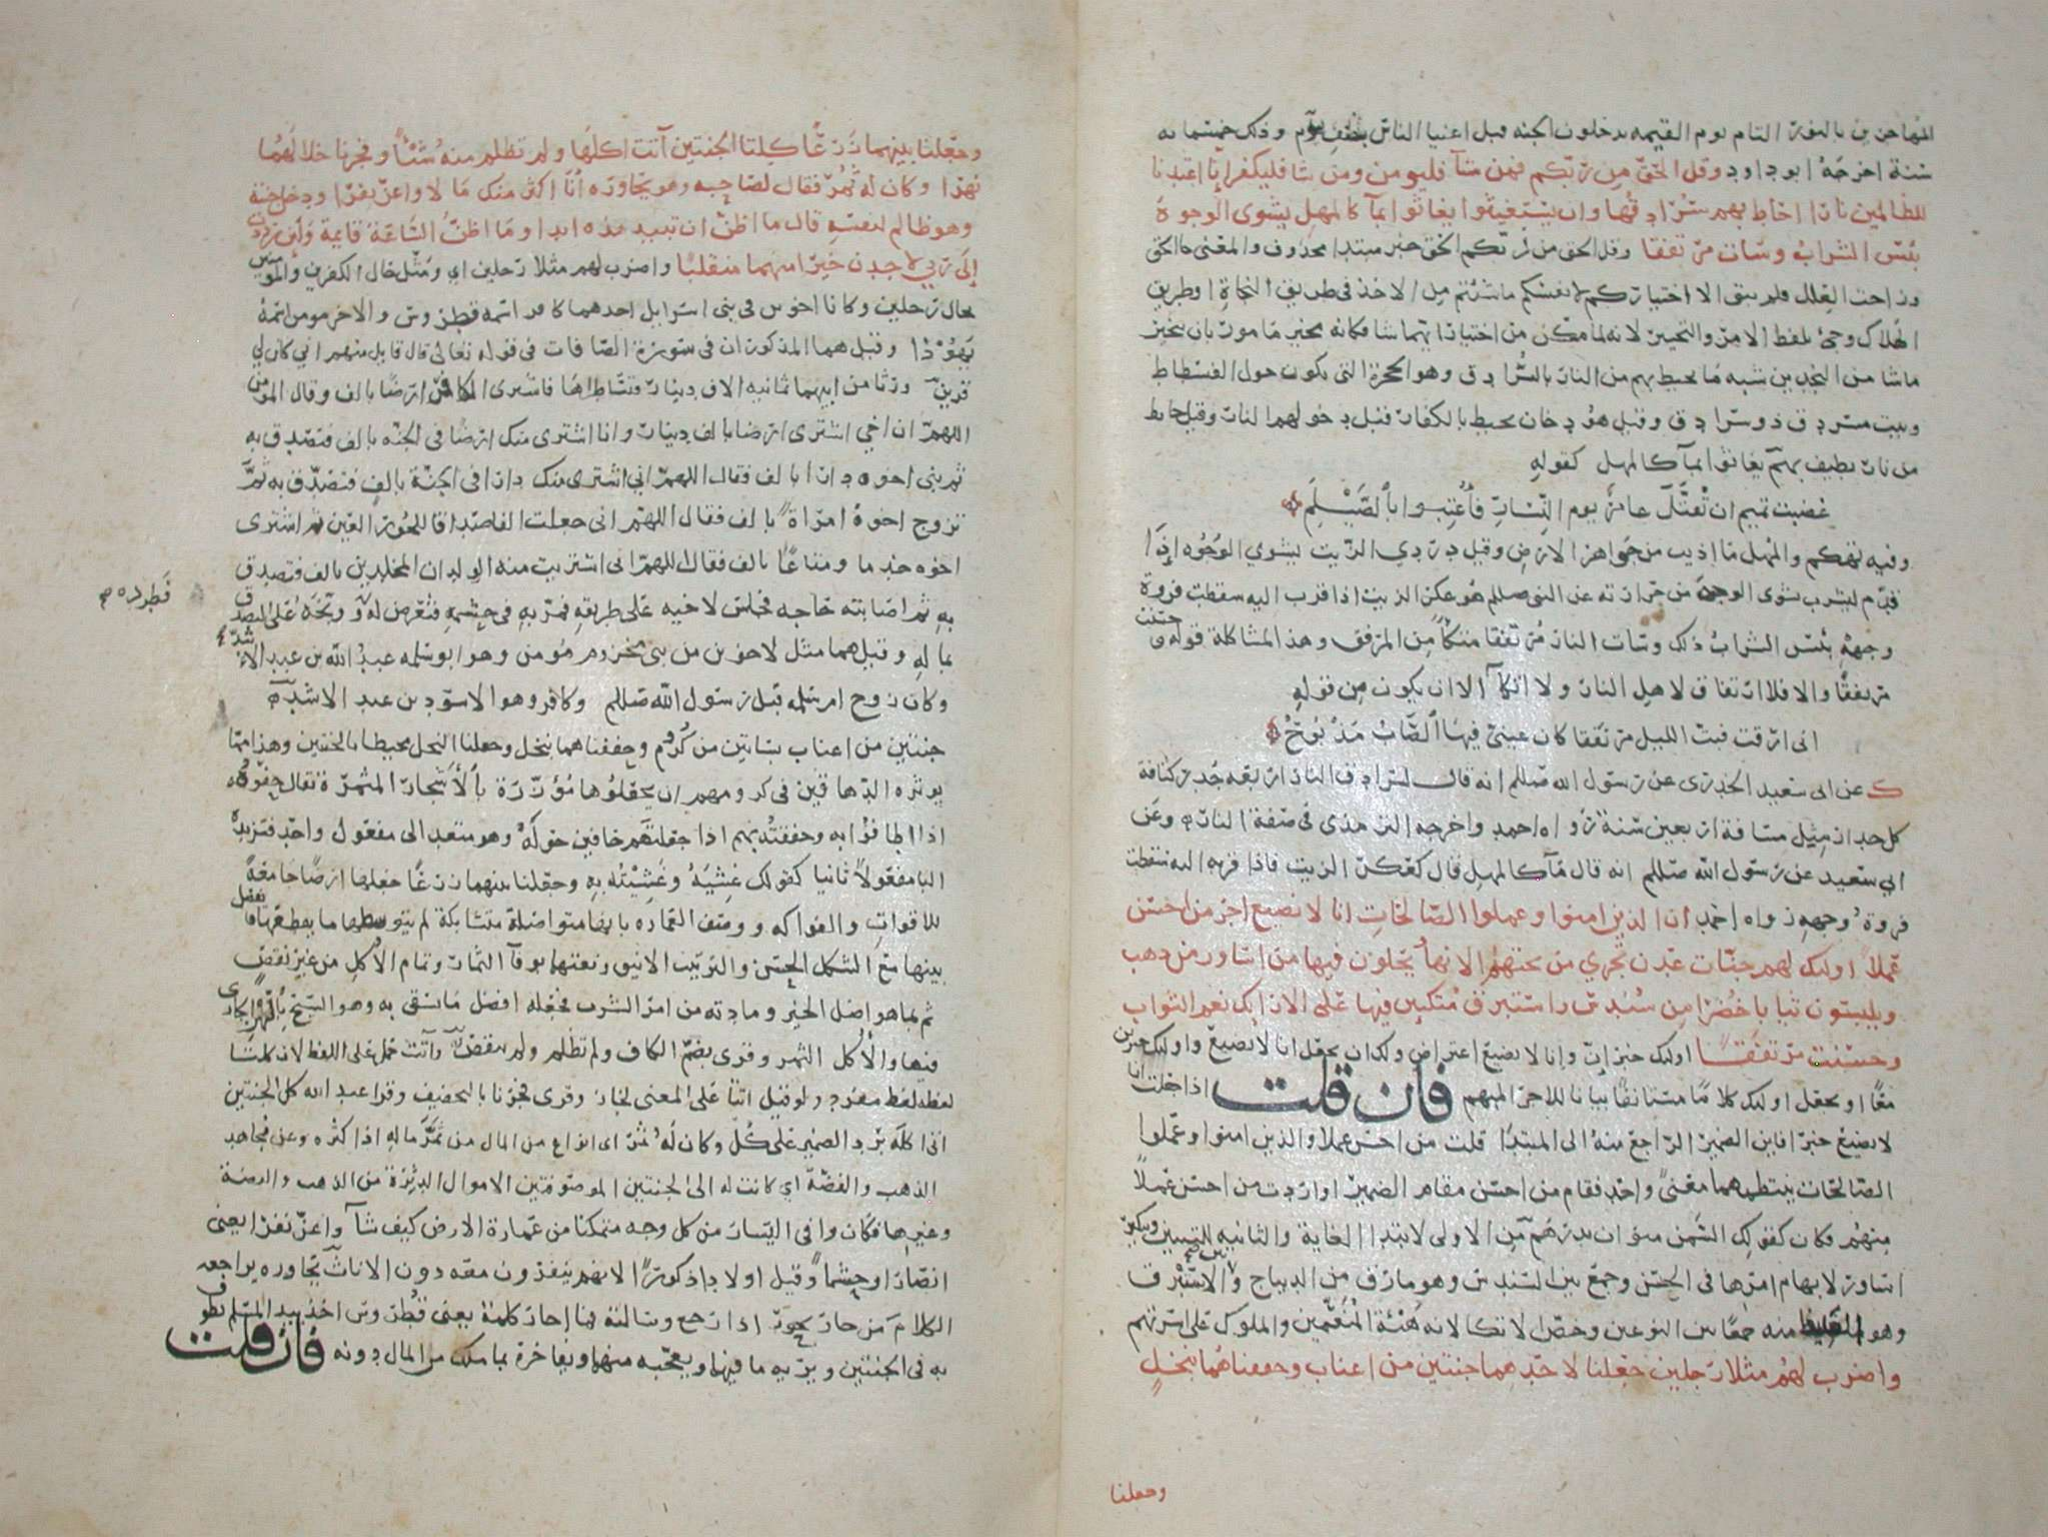 المهاجرين بالنور التام يوم القيمه تدخلون الجنه قبل اغنيا الناس بنصف يوم وذلك خمسمايه
سنة اخرجه ابو داود وقل الحق من ربكم فمن شآ فليومن ومن شا فليكفر انا اعتدنا
للظالمين نارا احاط بهم سرادقها وان يستغيثوا يغاثوا بمآ كالمهل يشوى الوجوة
بئس الشراب وسات مرتفقا وقل الحق من ربكم الحق خبر مبتدا محذوف والمعنى جا الحق
وزاحت العلل فلم يبق الا اختياركم لانفسكم ما شئتم من الاخذ في طريق النجاة او طريق
الهلاك وجئ بلفظ الامر والتخيير لانه لما مكن من اختيار ايهما شا فكانه مخير مامور بان يتخير
ماشا من النجدين شبه ما يحيط بهم من النار بالسرادق وهو الحجرة التى تكون حول الفسطاط
وبيت مسردق ذو سرادق وقيل هو دخان يحيط بالكفار قبل دخولهم النار وقيل حايط
من نار يطيف بهم يغاثوا بمآ كالمهل كقوله
غضبت تميم ان تقتل عامر يوم النسار فأعتبوا بالصيلم
وفيه تهكم والمهل ما اذيب من جواهر الارض وقيل دردي الزيت يشوي الوجوه اذا
قدم ليشرب شوى الوجه من حرارته عن النبى صللم هو عكر الزيت اذا قرب اليه سقطت فروة
وجهه بئس الشراب ذلك وسات النار مرتفقا متكأ من المرفق وهذا لمشاكلة قوله وحسنت
مرتفقا والا فلا ارتفاق لاهل النار ولا اتكآ الا ان يكون من قوله
انى ارقت فبت الليل مرتفقا كان عينى فيها الصاب مذبوح
ك عن ابى سعيد الخدرى عن رسول الله صللم انه قال لسرادق النار اربعه جدر كثافة
كل جدار مثل مسافة اربعين سنة رواه احمد واخرجه الترمذى في صفة النار وعن
ابي سعيد عن رسول الله صللم انه قال مآ كالمهل قال كعكر الزيت فاذا قربه اليه سقطت
فروة وجهه رواه احمد ان الذين امنوا وعملوا الصالحات انا لا نضيع اجر من احسن
عملا اولئك لهم جنات عدن تجري من تحتهم الانهار يحلون فيها من اساور من ذهب
ويلبسون ثيابا خضرا من سندس واستبرق متكين فيها على الارايك نعم الثواب
وحسنت مرتفقا اولئك خبر ان وانا لا نضيع اعتراض ولك ان تجعل انا لا نضيع واولئك خبرين
معا او تجعل اولئك كلاما مستانفا بيانا للاجر المبهم فان قلت اذا جعلت انا
لا نضيع خبرا فاين الضمير الراجع منه الى المبتدا قلت من احسن عملا والذين امنوا وعملوا
الصالحات ينتظمهما معنى واحد فقام من احسن مقام الضمير او اردت من احسن عملا
منهم فكان كقولك السمن منوان بدرهم من الاولى لابتدا الغاية والثانيه للتبيين وتنكير
اساور لابهام امرها فى الحسن وجمع بين السندس وهو مارق من الديباج والاستبرق
وهو الغليظ منه جمعا بين النوعين وخص الاتكا لانه هيئة المنعمين والملوك على اسرتهم
واضرب لهم مثلا رجلين جعلنا لاحدهما جنتين من اعناب وحففناهما بنخل
وجعلنا
وجعلنا بينهما زرعا كلتا الجنتين آتت اكلها ولم تظلم منه شئا وفجرنا خلالهما
نهرا وكان له ثمر فقال لصاحبه وهو يحاوره أنا اكثر منك مالا واعز نفرا ودخل جنته
وهو ظالم لنفسه قال ما اظن ان تبيد هذه ابدا وما اظن الساعة قايمة ولئن رددت
إلى ربي لاجدن خيرا منهما منقلبا واضرب لهم مثلا رجلين اي ومثل حال الكفرين والمومنين
بحال رجلين وكانا اخوين في بنى اسرايل احدهما كافر اسمه قطروس والاخر مومن اسمه
يهودا وقيل هما المذكوران فى سورة الصافات في قوله تعالى قال قايل منهم اني كان لي
قرين ورثا من ابيهما ثمانيه الاف دينار فتشاطراها فاشترى الكافر ارضا بالف وقال المومن
اللهم ان اخي اشترى ارضا بالف دينار وانا اشترى منك ارضا في الجنه بالف فتصدق به
ثم بنى اخوه دارا بالف فقال اللهم اني اشترى منك دارا في الجنة بالف فتصدق به ثم
تزوج اخوه امراة بالف فقال اللهم انى جعلت الفا صداقا للحور العين ثم اشترى
اخوه خدما ومتاعا بالف فقال اللهم انى اشتريت منك الولدان المخلدين بالف فتصدق
به ثم اصابته حاجه فجلس لاخيه على طريقه فمر به في حشمه فتعرض له وبخه على التصدق
بماله وقيل هما مثل لاخوين من بنى مخزوم مومن وهو ابو سلمه عبد الله بن عبد الاشد
وكان زوج ام سلمه قبل رسول الله صللم وكافر وهو الاسود بن عبد الاشد
جنتين من اعناب بساتين من كروم وحففناهما بنخل وجعلنا النخل محيطا بالجنتين وهذا مما
يوثره الدهاقين في كرومهم ان يجعلوها مؤزرة بالأشجار المثمرة يقال حفوه
اذا اطافوا به وحففته بهم اذا جعلتهم حافين حوله وهو متعد الى مفعول واحد فتزيده
البا مفعولا ثانيا كقولك غشيه وغشيته به وجعلنا بينهما زرعا جعلها ارضا جامعة
للاقوات والفواكه ووصف العماره بانها متواصلة متشابكة لم يتوسطها ما يقطعها ويفصل
بينها مع الشكل الحسن والترتيب الانيق ونعتهما بوفآ الثمار وتمام الأكل من غير نقص
ثم بما هو اصل الخير ومادته من امر الشرب فجعله افضل ما يسقى به وهو السيح بالنهر الجارى
فيها والأكل الثمر وقرى بضم الكاف ولم تظلم ولم تنقص وآتت حمل على اللفظ لان كلتا
لفظه لفظ مفرد ولو قيل اتتا على المعنى لجاز وقرى فجرنا بالتخفيف وقرا عبد الله كل الجنتين
اتى اكله برد الضمير على كل وكان له ثمر اى انواع من المال من ثمر ماله اذا كثره وعن مجاهد
الذهب والفضة اي كانت له الى الجنتين الموصوفتين الاموال الدثرة من الذهب والفضة
وغيرها فكان وافى اليسار من كل وجه متمكنا من عمارة الارض كيف شآ واعز نفرا يعنى
انصارا وحشما وقيل اولادا ذكورا لانهم ينفرون معه دون الاناث يحاوره يراجعه
الكلام من حار يحور اذا رجع وسالته فما احار كلمة يعنى قطروس اخذ بيد المسلم يطوف
به فى الجنتين ويريه ما فيهما ويعجبه منهما ويفاخره بما ملك من المال دونه فان قلت